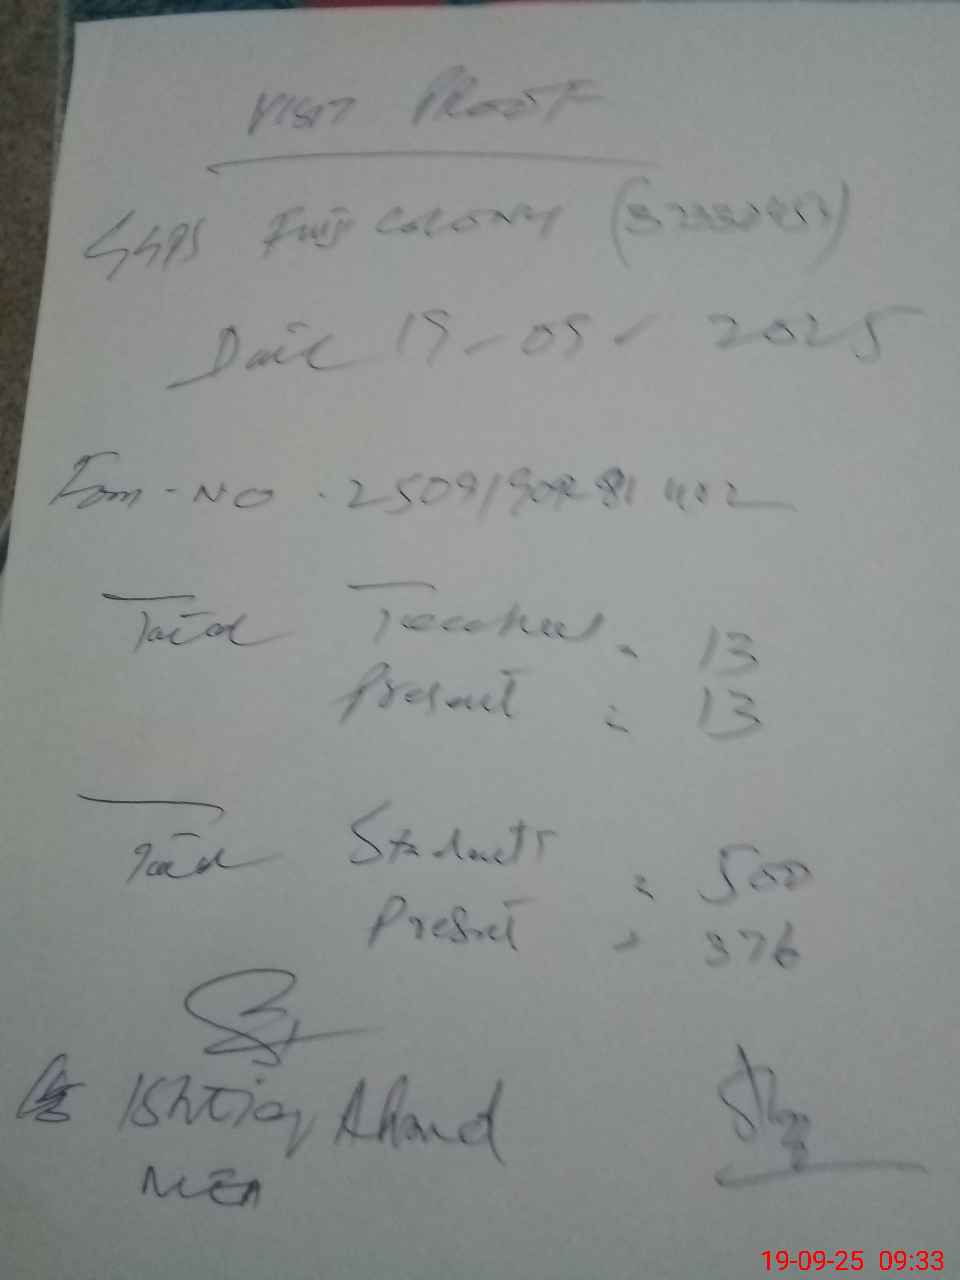 VISIT PROOF
GGPS Fuji Colony
Date 19-09-2025
Form-NO.
Total Teachers. 13
Present : 13
Total Students : 500
Present : 376
Ishtiaq Ahmad
MEA
19-09-25 09:33